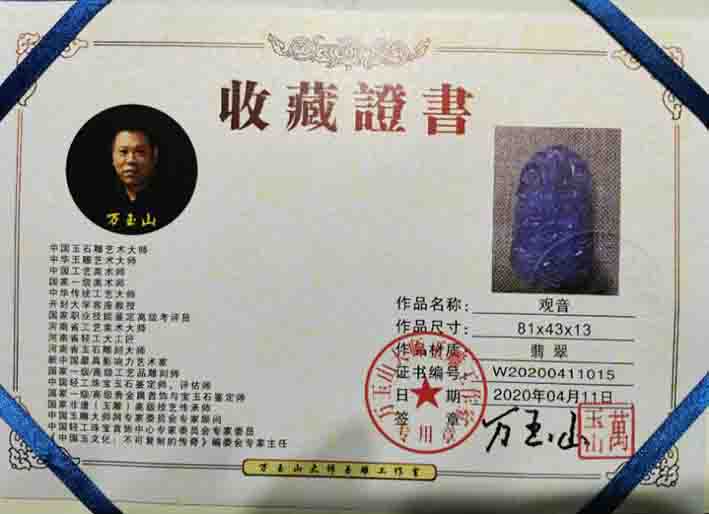 收藏證書
万玉山
中国玉石雕艺术大师
中华玉雕艺术大师
中国工艺美术师
国家一级美术师
中华传统工艺大师
开封大学客座教授
国家职业技能鉴定高级考评员
河南省工艺美术大师
河南省轻工大工匠
河南省玉石雕刻大师
新中国最具影响力艺术家
国家一级/高级工艺品雕刻师
中国轻工珠宝玉石鉴定师、评估师
国家一级/高级贵金属首饰与宝玉石鉴定师
国家非遗(玉雕)高级技艺传承师
中国玉雕大师专家委员会专家顾问
中国轻工珠宝首饰中心专家委员会专家委员
《中国玉文化:不可复制的传奇》编委会专家主任
作品名称: 观音
作品尺寸: 81x43x13
作品材质: 翡翠
证书编号: W20200411015
日期: 2020年04月11日
签章: 万玉山
萬玉山
专用章
万玉山大师玉雕工作室